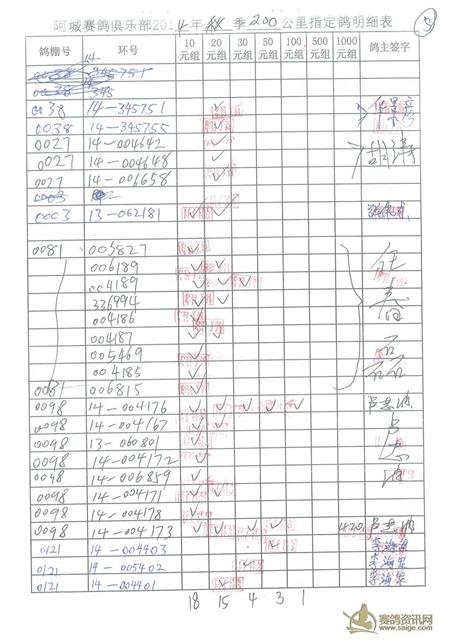 阿城赛鸽俱乐部2014年秋季200公里指定鸽明细表 ⑤
鸽棚号 环号 10元组 20元组 30元组 50元组 100元组 200元组 300元组 500元组 1000元组 鸽主签字
0038 14-345751 ✓
0038 14-345755 ✓
0027 14-004642 ✓
0027 14-004648 ✓
0027 14-006658 ✓
0003
0003 13-062181 ✓ ✓
0081 003827 ✓
006189 ✓ ✓
004189 ✓ ✓ ✓
336994 ✓ ✓
004186 ✓
004187 ✓ ✓
005469 ✓
004185 ✓
0081 006815 ✓
0098 14-004176 ✓ ✓ ✓ ✓ ✓
0098 14-004167 ✓ ✓
0098 13-060801 ✓
0098 14-004172 ✓
0098 14-006859 ✓
0098 14-004171 ✓ ✓
0098 14-004178 ✓
0098 14-004173 ✓ ✓ ✓ ✓ 420
0121 14-004403 ✓
0121 14-005402 ✓
0121 14-004401 ✓
18 15 4 3 1
赛鸽资讯网
www.saige.com